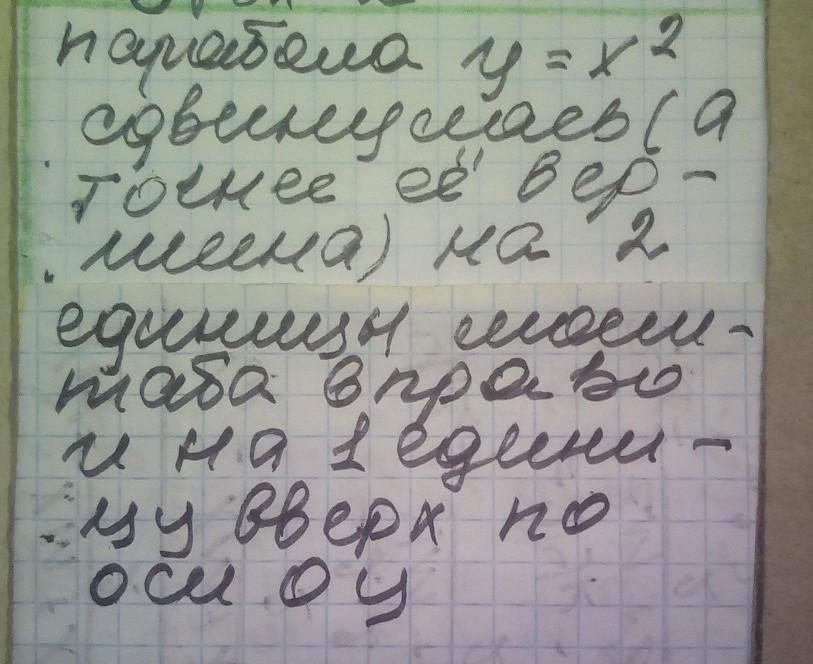 парабола y = x²
сдвинулась (а
точнее её вер-
шина) на 2
единицы мас-
таба вправо
и на 1 едини-
цу вверх по
оси Оу